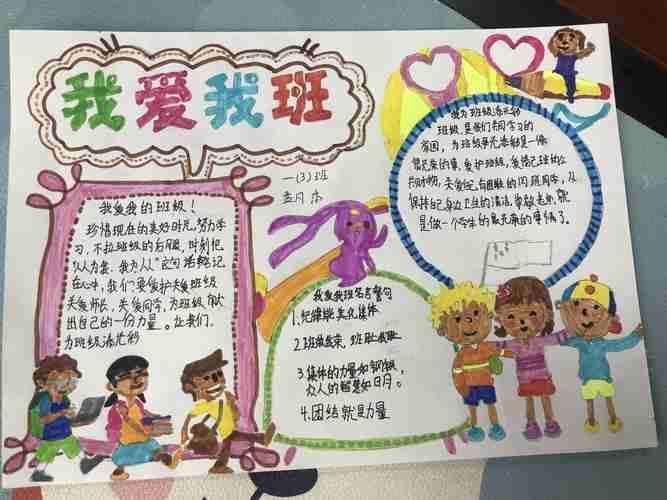 我爱我班
一(3)班
我爱我的班级！
珍惜现在的美好时光,努力学
习，不拉班级的后腿，时刻把
"人人为我，我为人人"这句话熟记
在心中，我们要爱护关爱班级
关爱师长，关爱同学，为班级献
出自己的一份力量。让我们
为班级添光彩
我为班级添光彩
班级,是我们共同学习的
家园，为班级争光添彩是一件
光荣的事，爱护班级,爱惜班的公
共财物,关爱同学,
保持好身边卫生的清洁，尊敬老师,就
是做一个学生的最光荣的事情了。
我爱我班名言警句
1.纪律
2.班荣我荣，班耻我耻
3.集体的力量如钢铁，
众人的智慧如日月。
4.团结就是力量